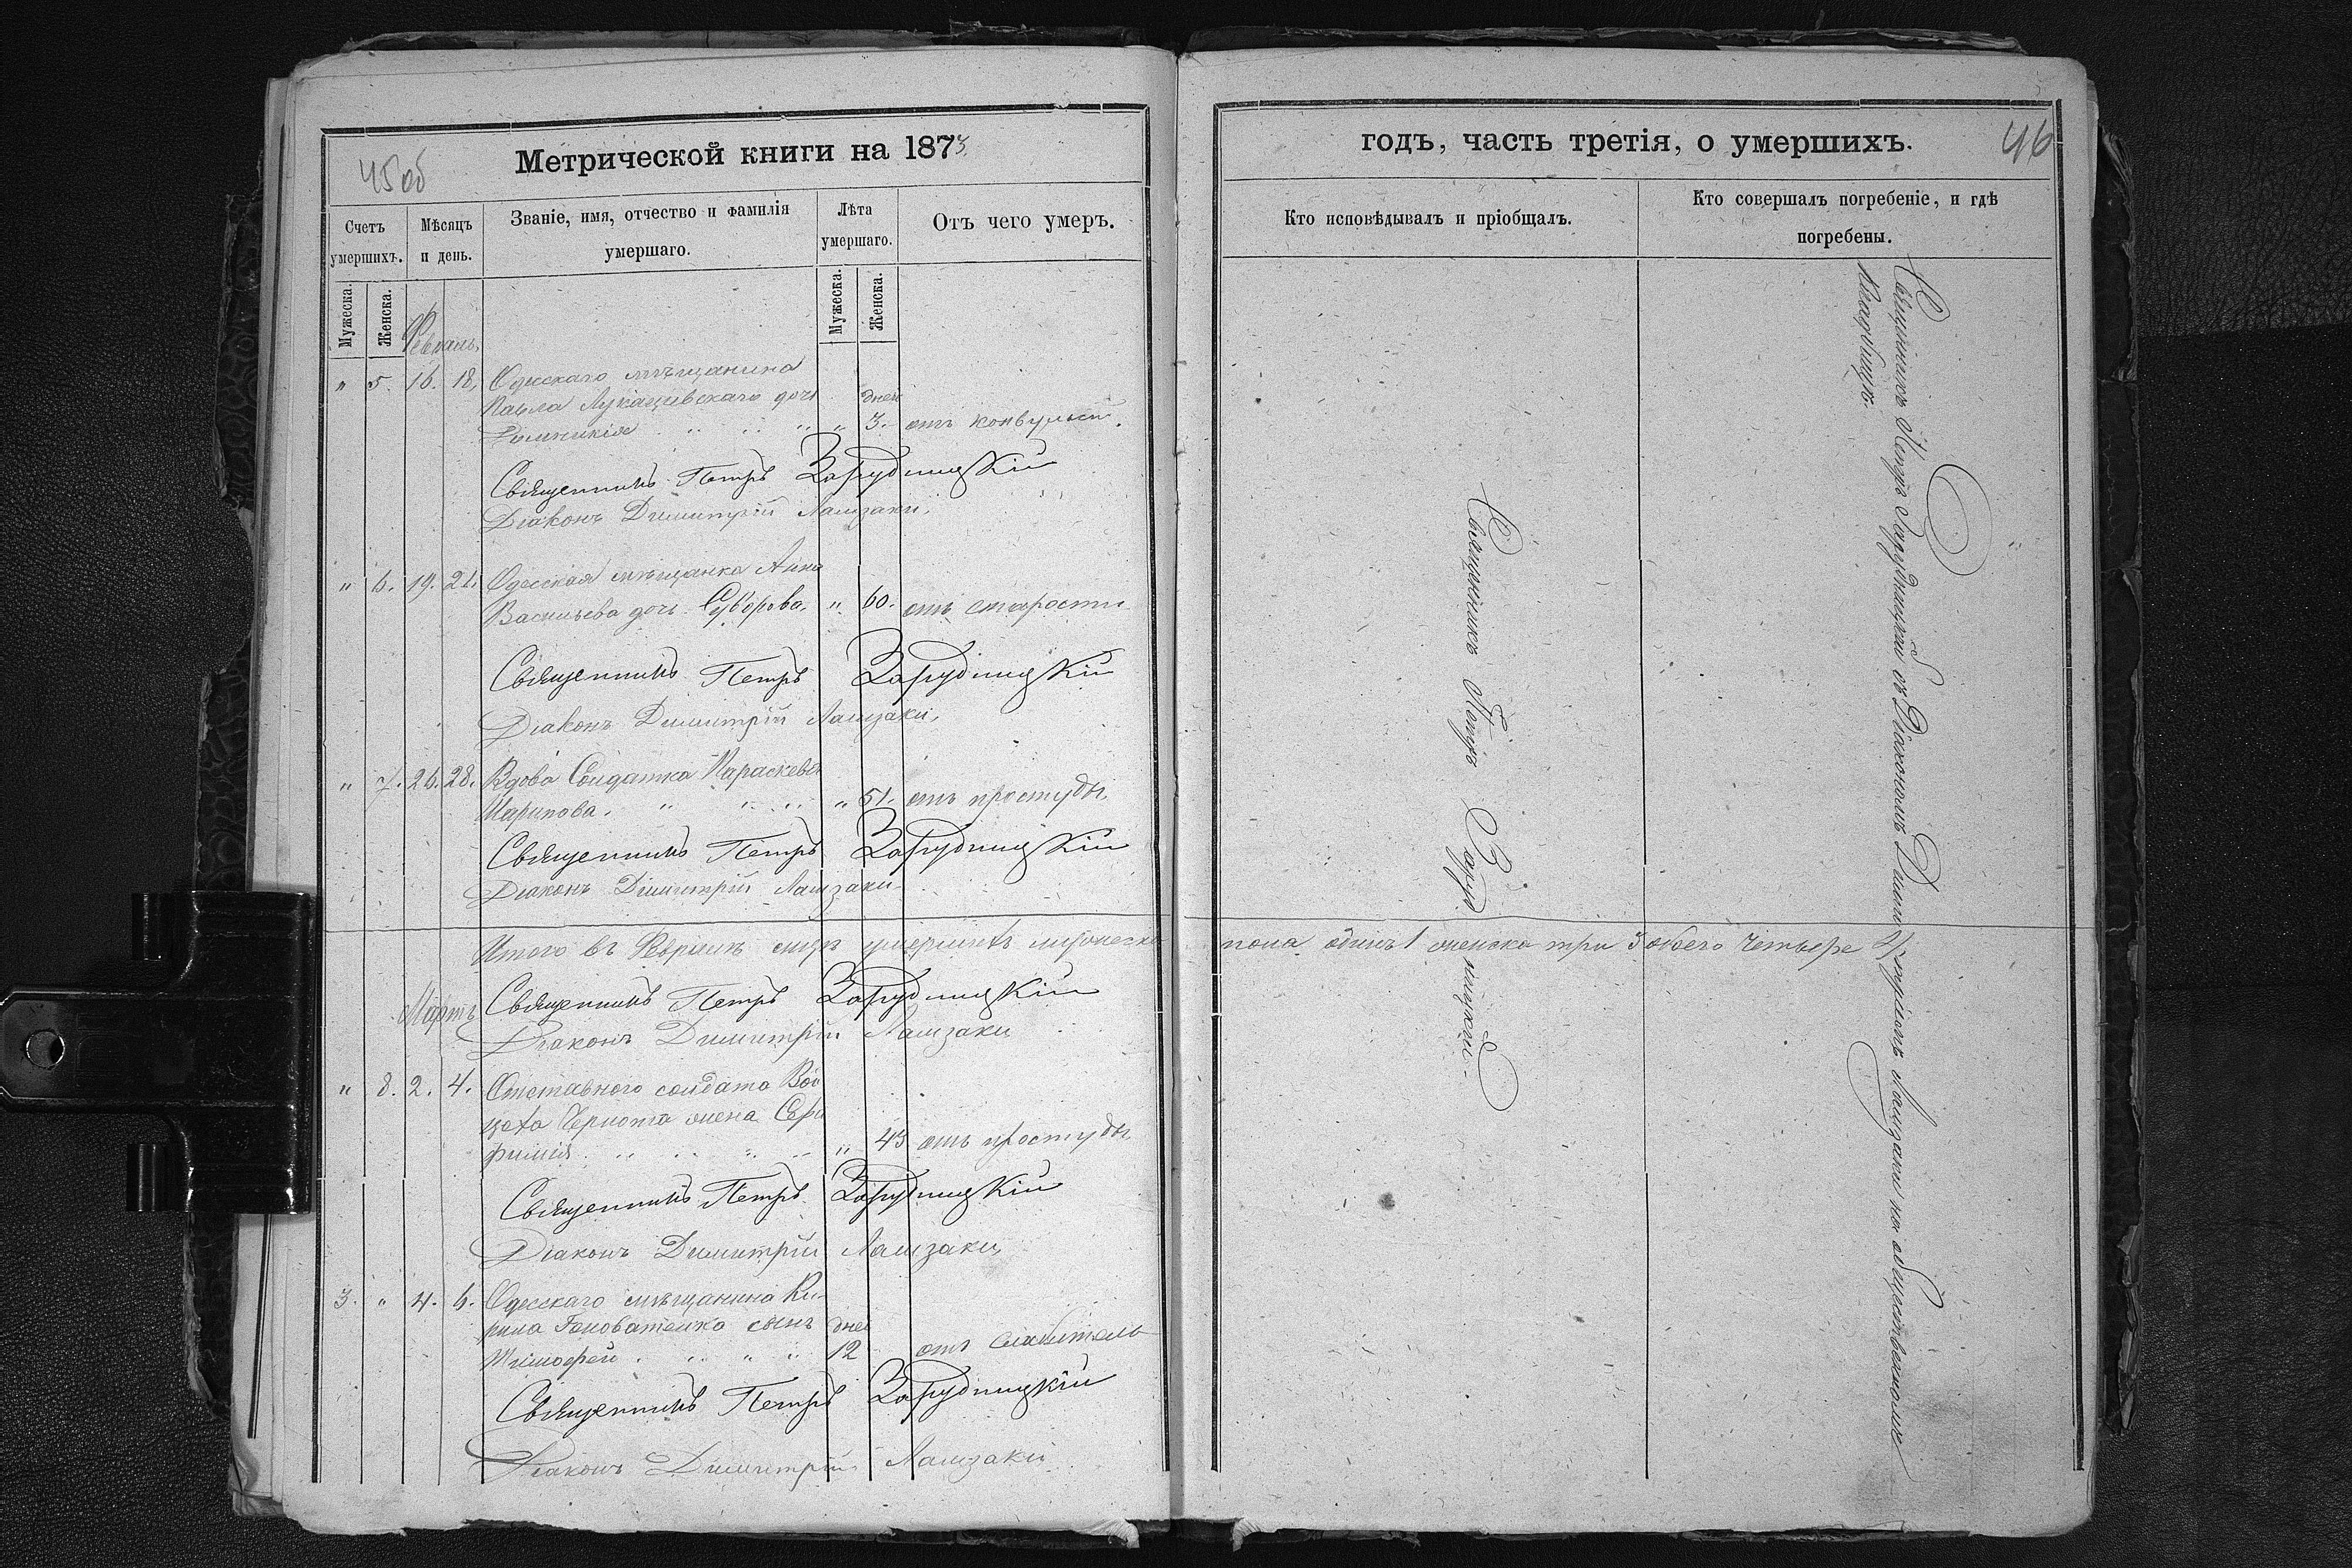 45 об
Метрической книги на 1873
Счетъ умершихъ.
Мѣсяцъ и день.
Званіе, имя, отчество и фамилія умершаго.
Лѣта умершаго.
Отъ чего умеръ.
Мужеска.
Женска.
Мужеска.
Женска.
Февраль
" 5. 16. 18. Одесскаго мѣщанина
Павла Лукашевскаго дочь дней
" 3. отъ конвульсій.
Священникъ Петръ Зарудницкій
Діаконъ Димитрій Ламзаки.
" 6. 19. 21. Одесская мѣщанка Анна
Васильева дочь Суворова. " 60. отъ старости
Священникъ Петръ Зарудницкій
Діаконъ Димитрій Ламзаки.
" 7. 26. 28. Вдова Солдатка Параскева
" 51. отъ простуды.
Священникъ Петръ Зарудницкій
Діаконъ Димитрій Ламзаки
Итого въ Февралѣ умершихъ мужеска
Мартъ
Священникъ Петръ Зарудницкій
Діаконъ Димитрій Ламзаки
" 8. 2. 4. Отставного солдата
жена
" 43 отъ простуды
Священникъ Петръ Зарудницкій
Діаконъ Димитрій Ламзаки
3. " 4. 6. Одесскаго мѣщанина Ки-
рила сынъ дней
Тимофей 12 отъ
Священникъ Петръ Зарудницкій
Діаконъ Димитрій Ламзаки
годъ, часть третія, о умершихъ.
46
Кто исповѣдывалъ и пріобщалъ.
Кто совершалъ погребеніе, и гдѣ
погребены.
Священникъ Петръ Зарудницкій
Священникъ Петръ Зарудницкій съ Діакономъ Димитріемъ Ламзаки на общественномъ
кладбищѣ.
пола одинъ 1 женска три 3 обоего четыре 4